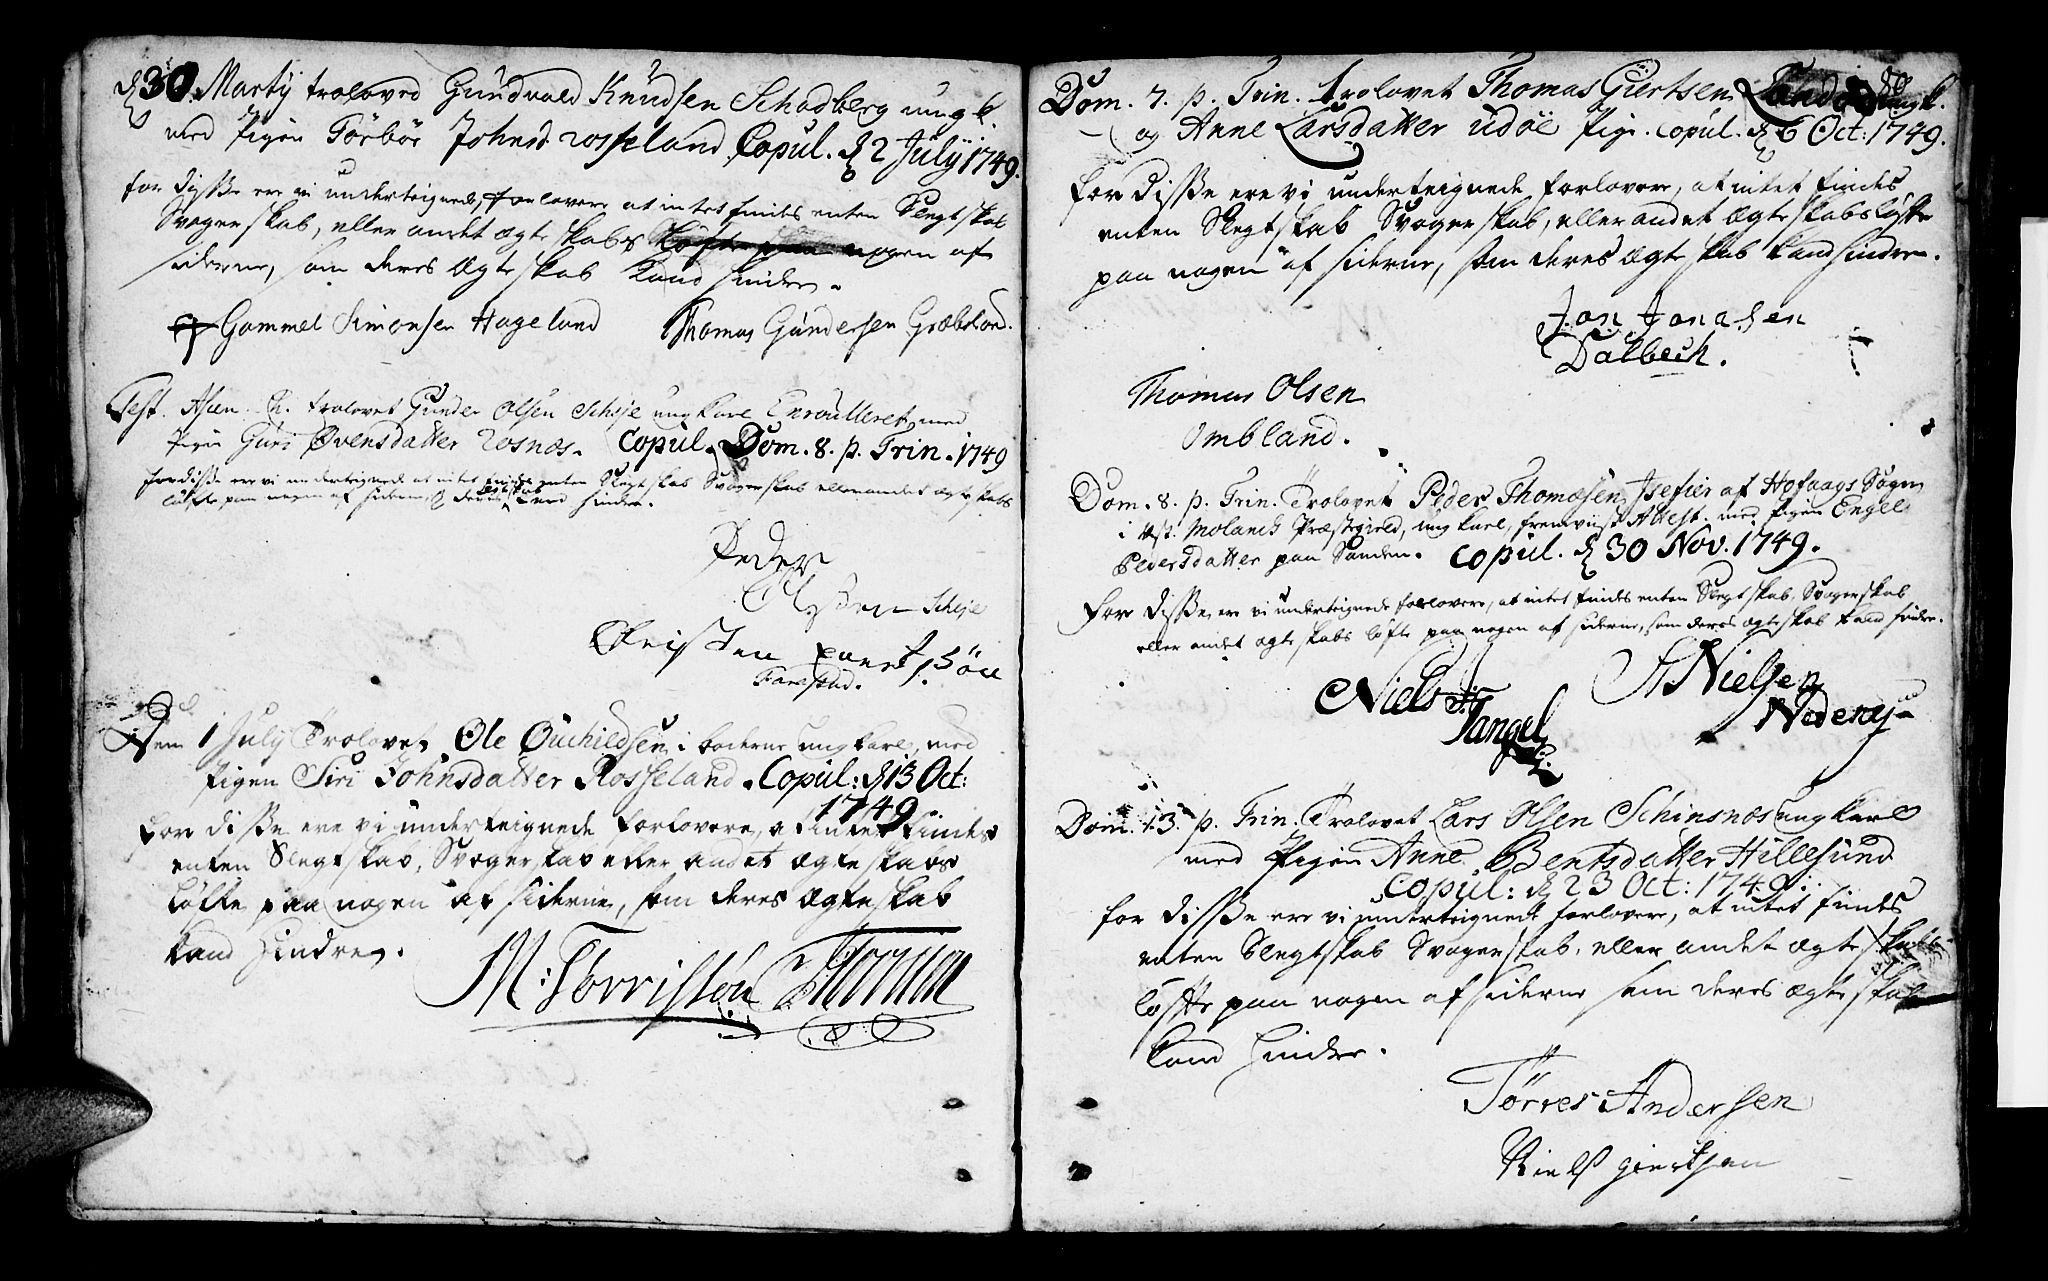 d 30 Martÿ troloved Gundvald Knudsen Schadberg ungk.
med pigen Torbor Johnsd. rosseland Copul. d 2 Julÿ 1749.
for disse ere vi undertegnede forlovere at intet findes enten Slegtskab
Svogerskab, eller andet ægteskabs Løfte paa nogen af
siderne, som deres Ægteskab kand hindre.
Gammel Simonsen Hageland Thomas Gundersen Græbsland.
Fest. Ascen. Ch. trolovet Gunder Olsen Scheje ungkarl Enroulleret med
pigen Guri Øvensdatter Rosnæs. Copul. Dom. 8. p. Trin. 1749
for disse ere vi undertegnede at intet findes enten Slegtskab Svogerskab eller andet ægteskabs
løfte paa nogen af siderne, deres Ægteskab kand hindre.
Peder
Olssen Scheje
Christen
Farsund.
Den 1 July Trolovet Ole Ouchildsen i boderne ungkarl, med
pigen Siri Johnsdatter Rosseland. Copul: d 13 Oct:
1749.
For disse ere vi undertegnede forlovere, at intet findes
enten Slegtskab, Svogerskab eller andet ægteskabs
Løfte paa nogen af siderne, som deres ægteskab
kand hindre.
M: Torrissøn
Dom. 7. p. Trin. trolovet Thomas Giertsen ungk.
og Anne Larsdatter udøe Pige. copul. d 6 Oct: 1749.
for disse ere vi undertegnede forlovere, at intet findes
enten Slegtskab Svogerskab, eller andet Ægteskabsløfte
paa nogen af siderne, som deres ægteskab kand hindre.
Jon Jonasen
Dalbech.
Thomas Olsen
Ombland.
Dom. 8. p. Trin. Trolovet Peder Thomæsen af Sogn
i Præstegield, ungkarl, fremviist Attest. med pigen Engel
Pedersdatter paa Sanden. copul. d 30 Nov. 1749.
For disse, ere vi undertegnede forlovere, at intet findes enten Slegtskab, Svogerskab
eller andet ægteskabs løfte paa nogen af siderne, som deres ægteskab kand hindre.
Niels
Tangel
Nielsen
Dom. 13. p. Trin. Trolovet Lars Olsen Schinsnæs ungkarl
med Pigen Anne Bentsdatter Hillesund
copul: d 23 Oct: 1749.
for disse ere vi undertegnede forlovere, at intet findes
enten Slegtskab Svogerskab, eller andet ægteskabs
løfte paa nogen af siderne som deres ægteskab
kand hindre.
Törres Andersen
Niels giertsen